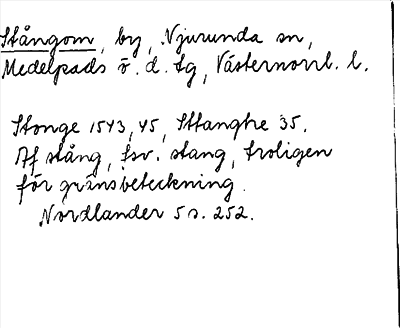 Stångom, by, Njurunda sn,
Medelpads ö. d. tg, Västernorrl. l.
Stonge 1543, 45, Sttanghe 35.
Af stång, fsv. stang, troligen
för gränsbeteckning.
Nordlander 5 s. 252.